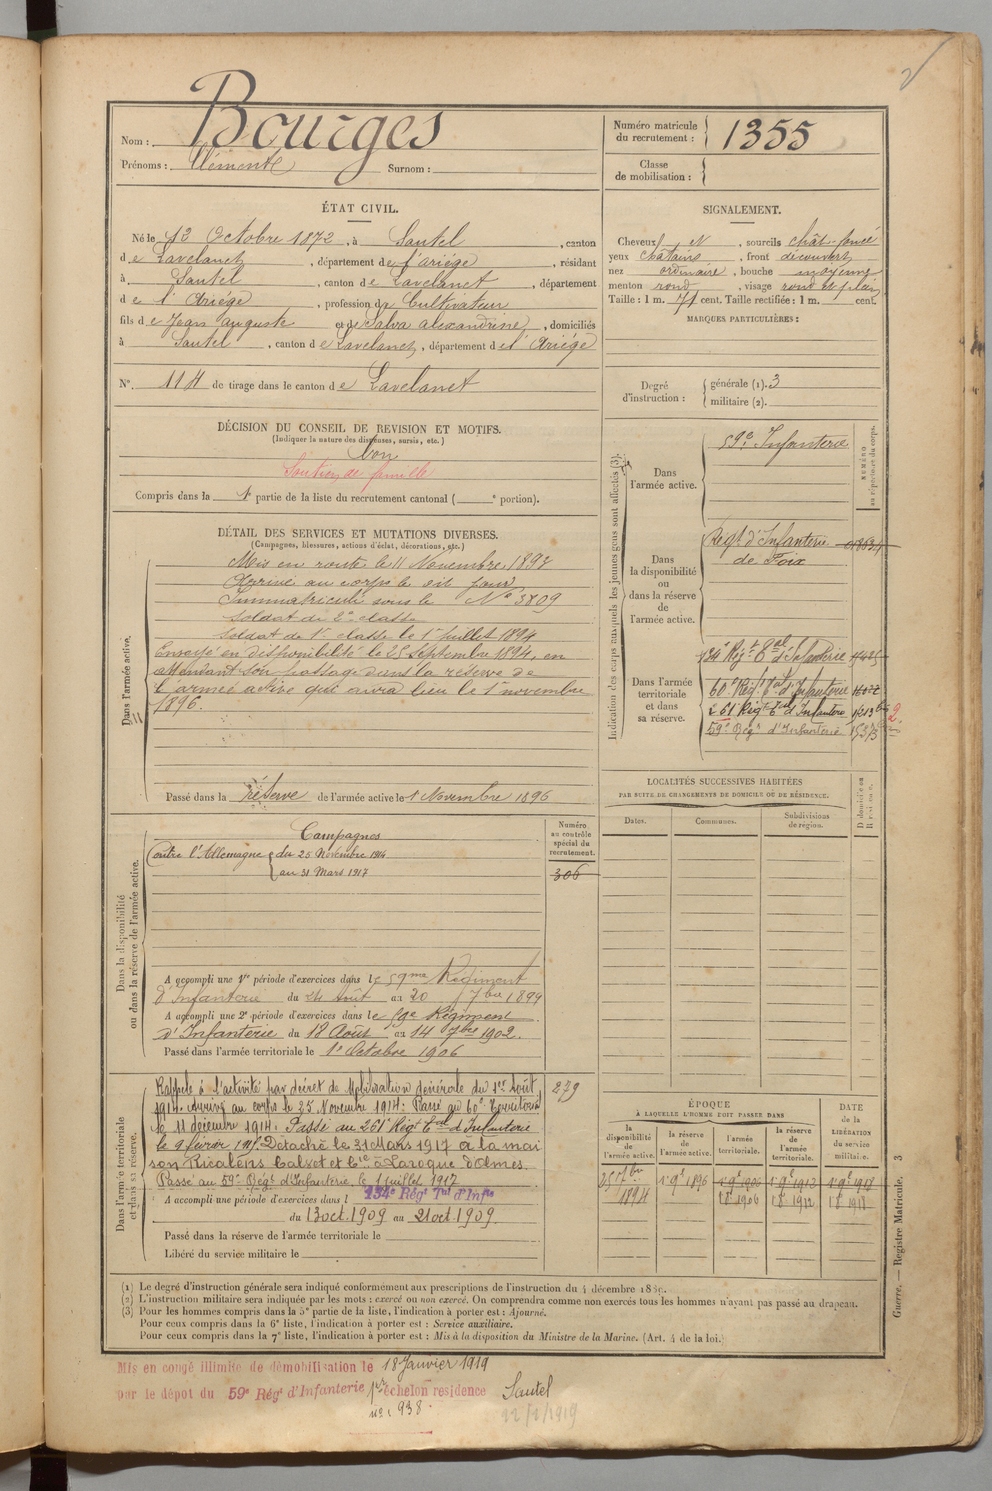 2
Nom : Bourges
Prénoms : Clémenté Surnom :
Numéro matricule du recrutement : 1355
Classe de mobilisation :
ÉTAT CIVIL.
Né le 12 Octobre 1872, à Sautel, canton
de Lavelanet, département de l'ariége, résidant
à Sautel, canton de Lavelanet, département
de l'Ariége, profession de Cultivateur
fils de Jean auguste et de Salva alexandrine, domiciliés
à Sautel, canton de Lavelanet, département de l'Ariége
N° 114 de tirage dans le canton de Lavelanet
SIGNALEMENT.
Cheveux N, sourcils chât-foncé
yeux châtains, front découvert
nez ordinaire, bouche moyenne
menton rond, visage rond et plein
Taille : 1 m. 71 cent. Taille rectifiée : 1 m. cent.
MARQUES PARTICULIÈRES :
Degré d'instruction : générale (1). 3
militaire (2).
DÉCISION DU CONSEIL DE REVISION ET MOTIFS.
(Indiquer la nature des dispenses, sursis, etc.)
bon
Soutien de famille
Compris dans la 1e partie de la liste du recrutement cantonal ( e portion).
DÉTAIL DES SERVICES ET MUTATIONS DIVERSES.
(Campagnes, blessures, actions d'éclat, décorations, etc.)
Dans l'armée active.
Mis en route le 11 Novembre 1893
Arrivé au corps le dit jour
Immatriculé sous le N° 3809
Soldat de 2e classe
Soldat de 1re classe le 1er Juillet 1894
Envoyé en disponibilité le 25 Septembre 1894, en
attendant son passage dans la réserve de
l'armée active qui aura lieu le 1er novembre
1896.
Passé dans la réserve de l'armée active le 1 Novembre 1896
Indication des corps auxquels les jeunes gens sont affectés (3).
NUMÉRO au répertoire du corps.
Dans l'armée active.
59e Infanterie
Dans la disponibilité ou dans la réserve de l'armée active.
Régt d'Infanterie
de Foix
Dans l'armée territoriale et dans sa réserve.
134e Régt Tal d'Infanterie
60e Régt Tal d'Infanterie
261 Régt Tal d'Infanterie
59e Régt d'Infanterie
LOCALITÉS SUCCESSIVES HABITÉES
PAR SUITE DE CHANGEMENTS DE DOMICILE OU DE RÉSIDENCE.
Dates.
Communes.
Subdivisions de région.
D domicile ou R résidence.
Dans la disponibilité ou dans la réserve de l'armée active.
Numéro au contrôle spécial du recrutement.
306
Campagnes
Contre l'Allemagne du 25 Novembre 1914
au 31 Mars 1917
A accompli une 1re période d'exercices dans le 59me Régiment
d'Infanterie du 24 Août au 20 7bre 1899
A accompli une 2e période d'exercices dans le 59e Régiment
d'Infanterie du 18 Août au 14 7bre 1902.
Passé dans l'armée territoriale le 1er Octobre 1906
Dans l'armée territoriale et dans sa réserve.
279
Rappelé à l'activité par décret de Mobilisation Générale du 1er Août
1914. Arrivé au corps le 25 Novembre 1914. Passé au 60e Territorial
le 11 décembre 1914. Passé au 261 Régt Tal d'Infanterie
le 9 février 191. Détaché le 31 Mars 1917 à la mai
son Ricalens Calvet et Cie à Laroque d'Olmes.
Passé au 59e Régt d'Infanterie le 1 juillet 1917
A accompli une période d'exercices dans l 134e Régt Tal d'Infie
du 13 oct. 1909 au 21 oct. 1909.
Passé dans la réserve de l'armée territoriale le
Libéré du service militaire le
ÉPOQUE
À LAQUELLE L'HOMME DOIT PASSER DANS
la disponibilité de l'armée active.
la réserve de l'armée active.
l'armée territoriale.
la réserve de l'armée territoriale.
DATE de la LIBÉRATION du service militaire.
25 7bre 1894
1er 9e 1896
1er 9e 1906
1er 9e 1912
1er 9e 1918
1er 8e 1906
1er 8e 1912
1er 8e 1918
Guerre. — Registre Matricule. 3
(1) Le degré d'instruction générale sera indiqué conformément aux prescriptions de l'instruction du 4 décembre 1889.
(2) L'instruction militaire sera indiquée par les mots : exercé ou non exercé. On comprendra comme non exercés tous les hommes n'ayant pas passé au drapeau.
(3) Pour les hommes compris dans la 5e partie de la liste, l'indication à porter est : Ajourné.
Pour ceux compris dans la 6e liste, l'indication à porter est : Service auxiliaire.
Pour ceux compris dans la 7e liste, l'indication à porter est : Mis à la disposition du Ministre de la Marine. (Art. 4 de la loi.)
Mis en congé illimité de démobilisation le 18 Janvier 1919
par le dépot du 59e Régt d'Infanterie 1er échelon résidence Sautel
no 938.